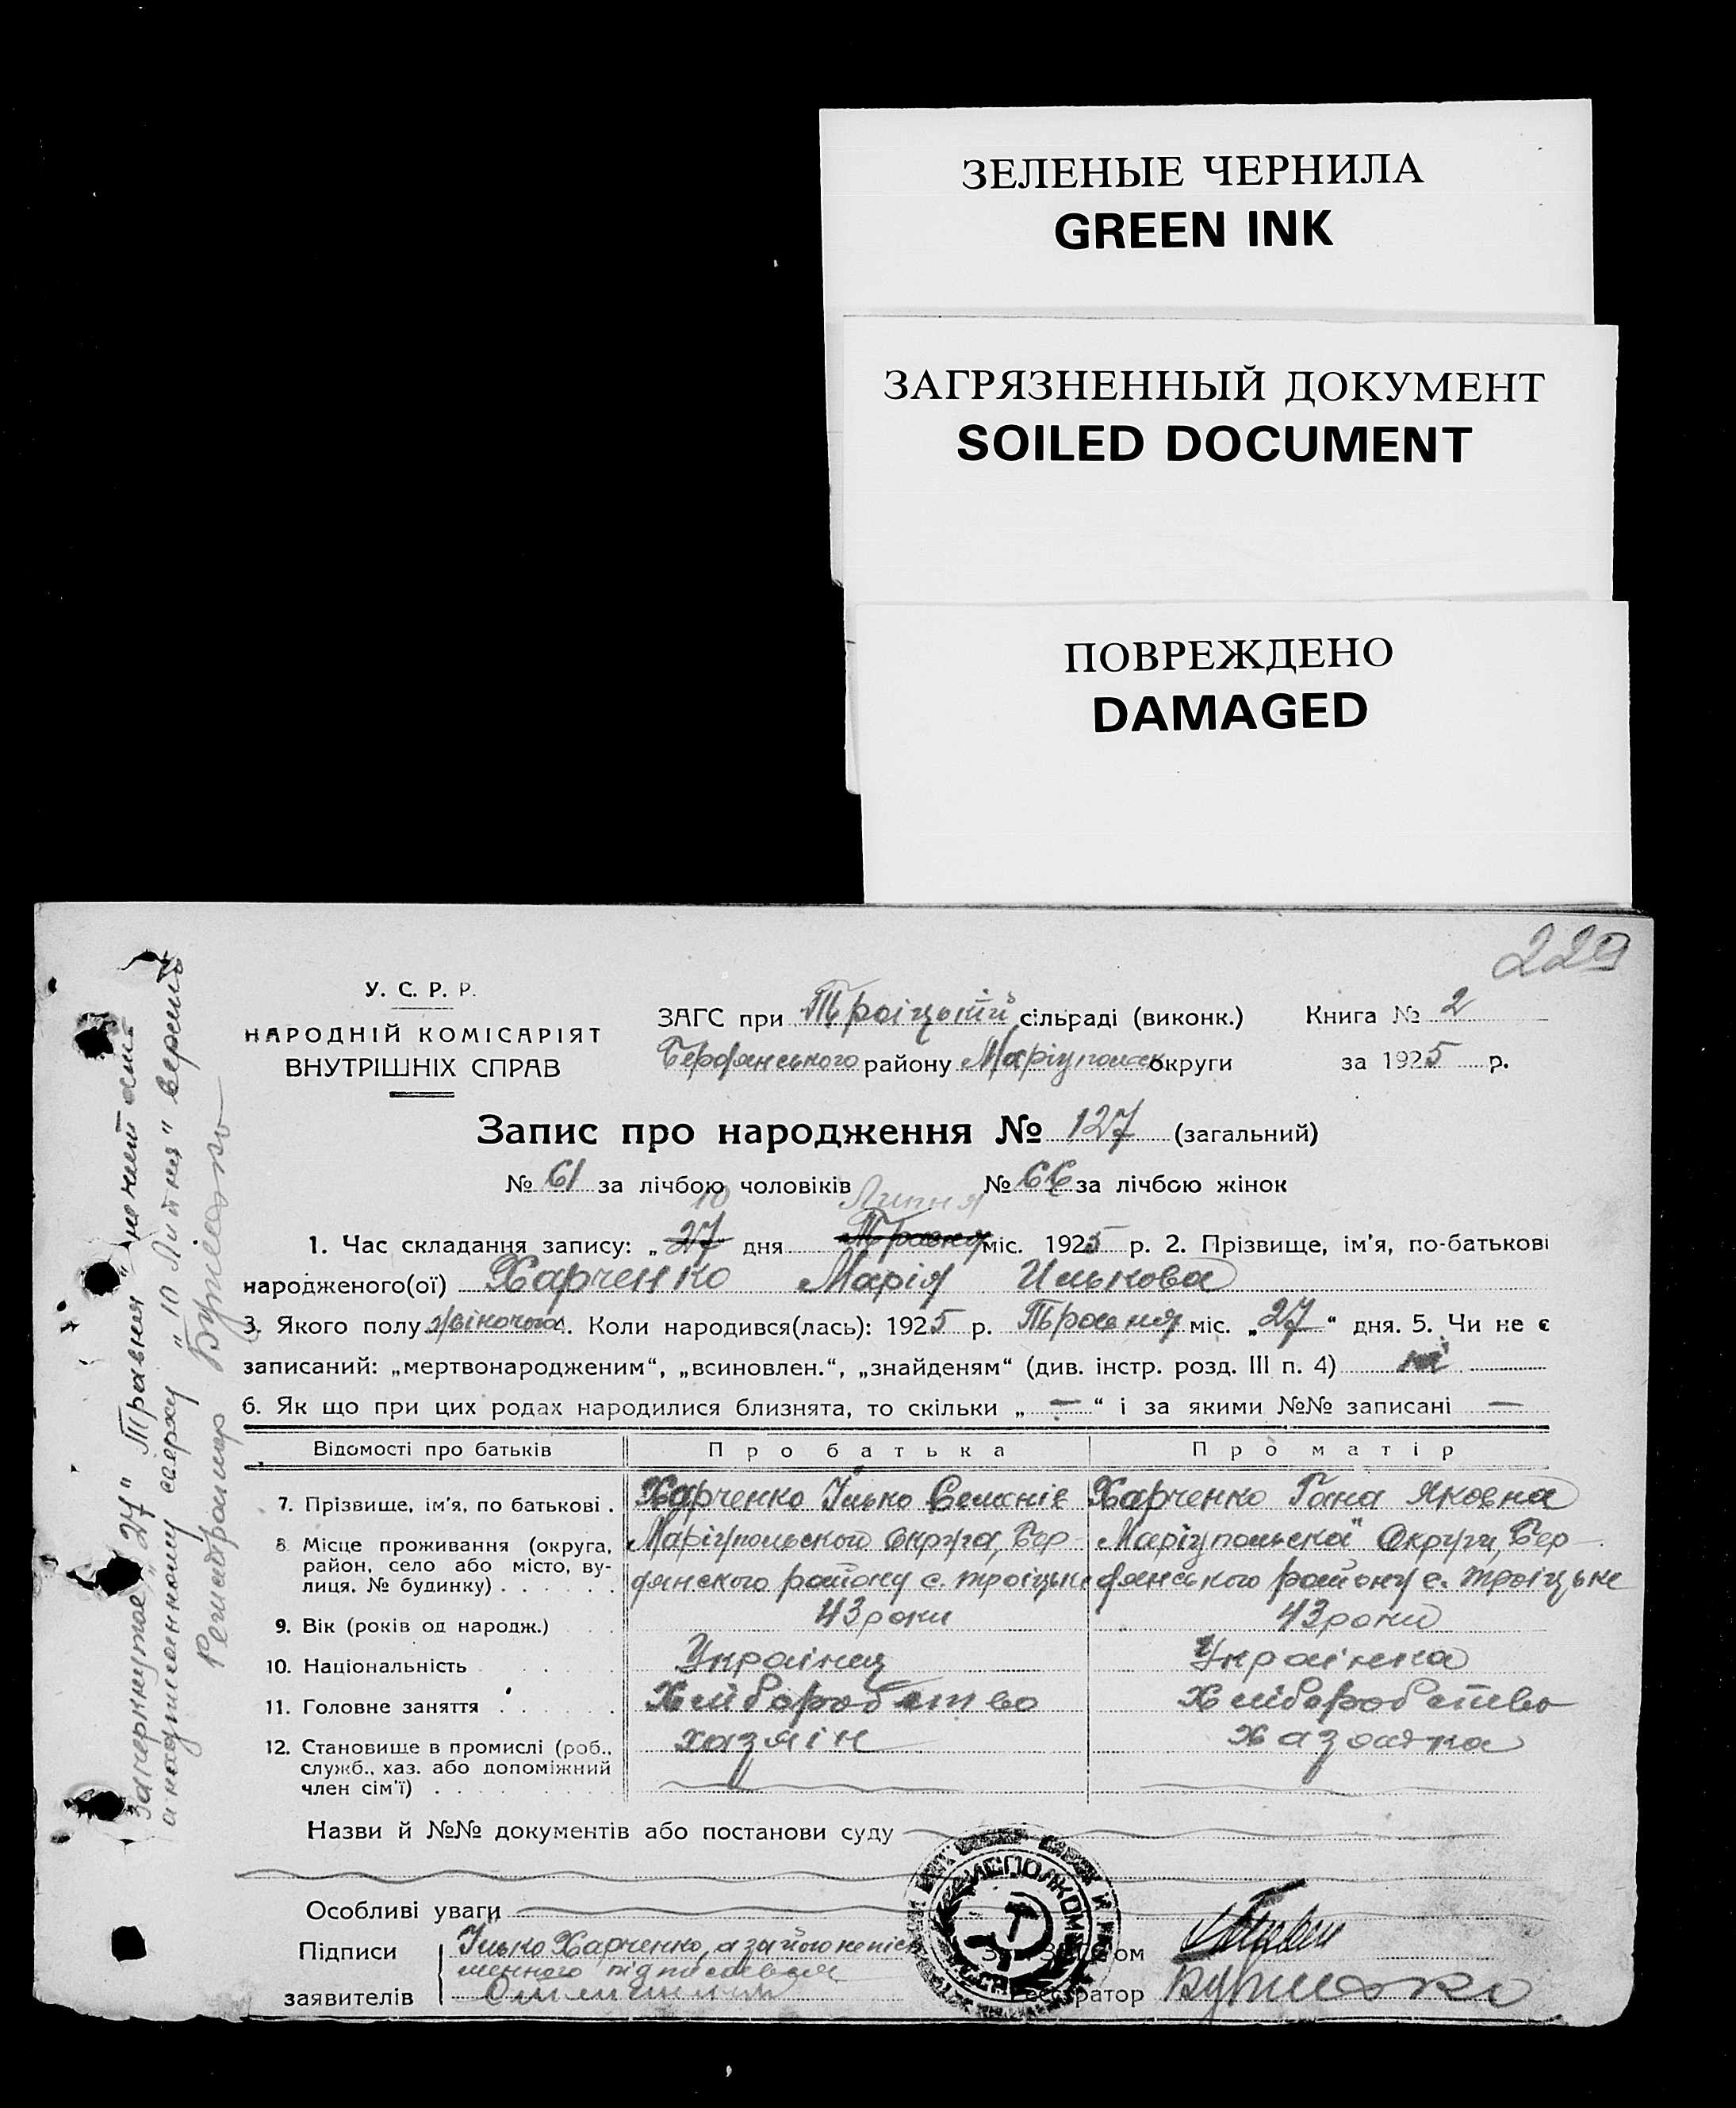 ЗЕЛЕНЫЕ ЧЕРНИЛА
GREEN INK
ЗАГРЯЗНЕННЫЙ ДОКУМЕНТ
SOILED DOCUMENT
ПОВРЕЖДЕНО
DAMAGED
229
У. С. Р. Р.
НАРОДНІЙ КОМІСАРІЯТ
ВНУТРІШНІХ СПРАВ
ЗАГС при Троіцький сільраді (виконк.) Книга № 2
Бердянського району Маріупольск округи за 1925 р.
Запис про народження № 127 (загальний)
№ 61 за лічбою чоловіків № 66 за лічбою жінок
10 Липня
1. Час складання запису: „27 дня Травня міс. 1925 р. 2. Прізвище, ім'я, по-батькові
народженого(ої) Харченко Марія Илькова
3. Якого полу жіночого. Коли народився(лась): 1925 р. Травня міс. „27“ дня. 5. Чи не є
записаний: „мертвонародженим“, „всиновлен.“, „знайденям“ (див. інстр. розд. III п. 4) ні
6. Як що при цих родах народилися близнята, то скільки „ — “ і за якими №№ записані —
Відомості про батьків Про батька Про матір
7. Прізвище, ім'я, по батькові . Харченко Ілько Семенів Харченко Гана Яковна
8. Місце проживання (округа, район, село або місто, вулиця, № будинку) Маріупольского округа, Бердянского району с. Троіцьке Маріупольска округи, Бердянського району с. Троіцьке
9. Вік (років од народж.) 43 роки 43 роки
10. Національність Українец Українка
11. Головне заняття Хліборобство Хліборобство
12. Становище в промислі (роб., служб., хаз. або допоміжний член сім'ї) хазяін хазяйка
Назви й №№ документів або постанови суду
Особливі уваги
Підписи заявителів Ілько Харченко, а за його неписьменного підписався
ИСПОЛКОМ
Реєстратор
Зачеркнутое „27“ Травня
а надписанному сверху „10 Липня“ верить
Регистратор